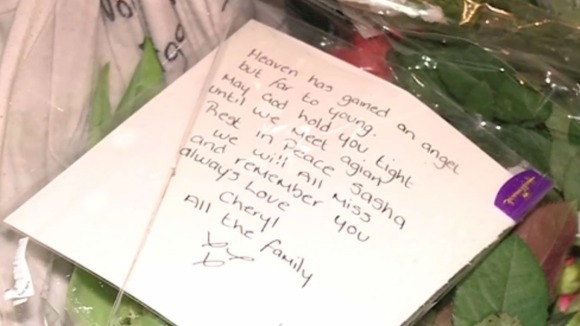 Heaven has gained an angel
but far to young.
May God hold you tight
until we meet agian
Rest in Peace Sasha
we will All Miss
and remember you
always Love
Cheryl
All the family
xxx
Hallmark